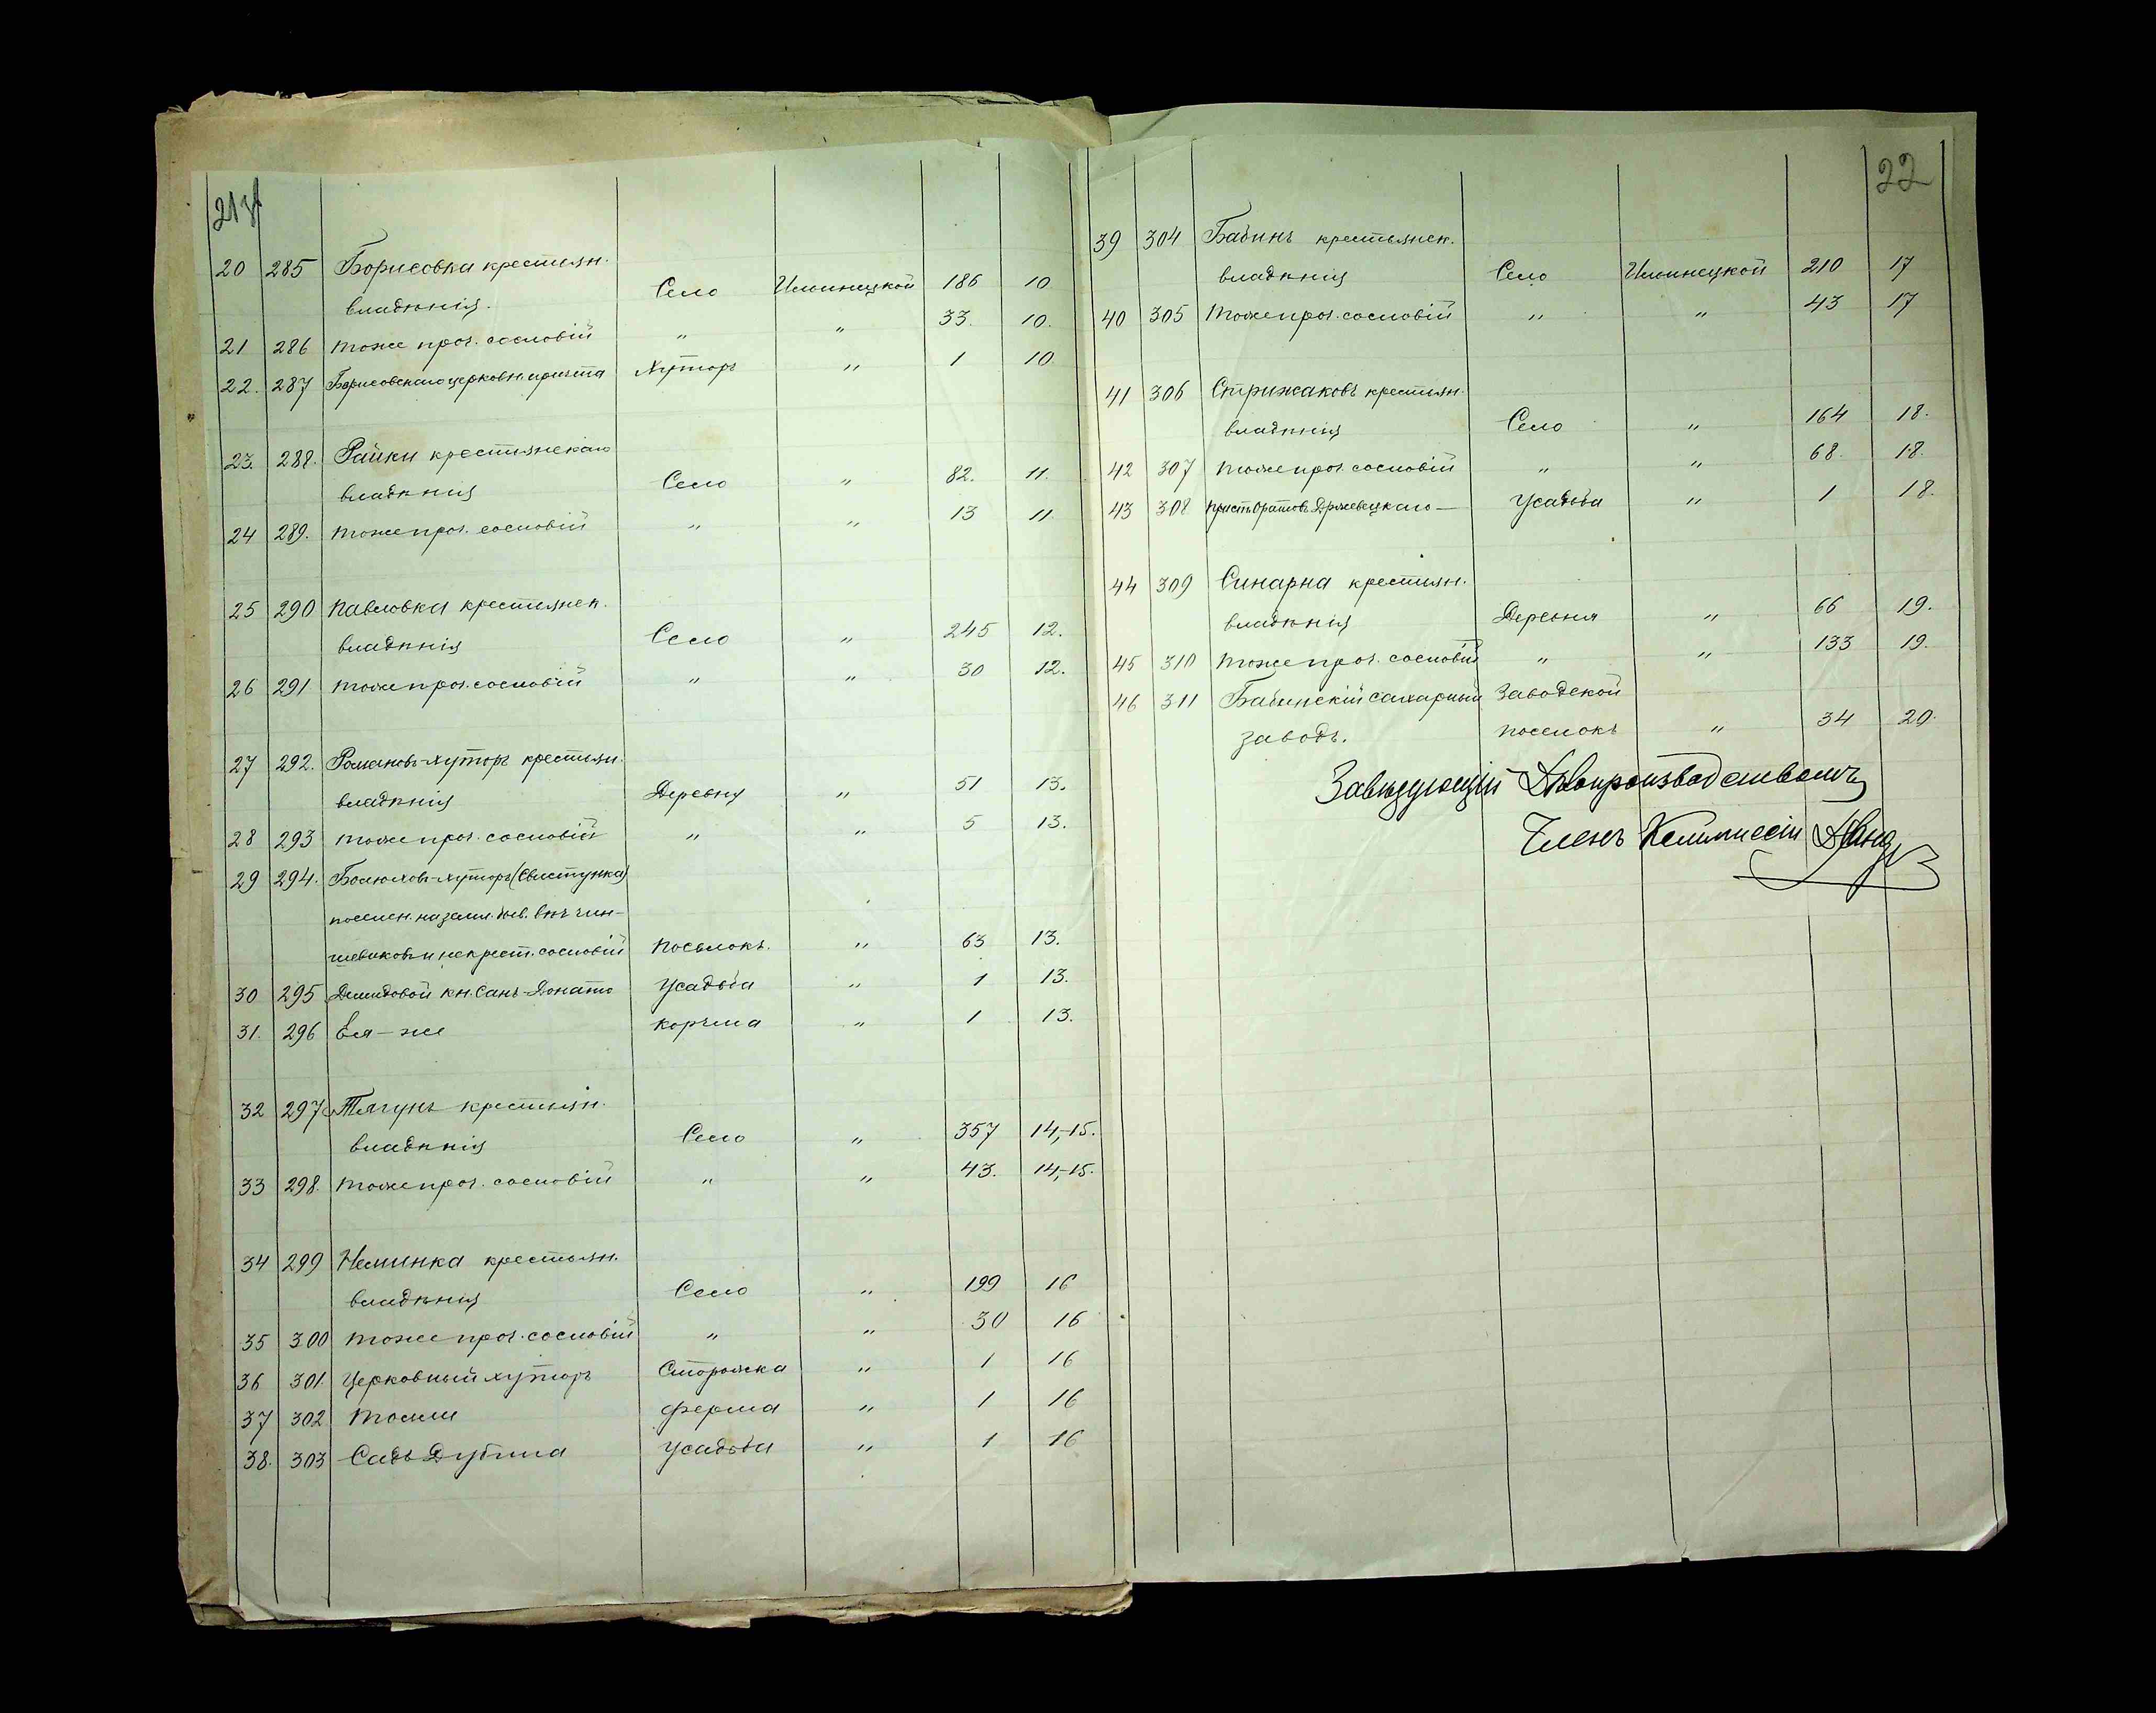 20 285 Борисовка крестьян.
владѣнія. Село Илинецкой 186 10
21 286 тоже проч. сословій " " 33. 10.
22. 287 Борисовскаго церковн. причта Хуторъ " 1 10
23. 288. Райки крестьянскаго
владѣнія Село " 82. 11.
24 289. тоже проч. сословій " " 13 11
25 290 Павловка крестьянск.
владѣнія Село " 245 12.
26 291 тоже проч. сословій " " 30 12.
27 292. Романовъ-хуторъ крестьян.
владѣнія Деревня " 51 13.
28 293 тоже проч. сословій " " 5 13.
29 294. Болюховъ-хуторъ (Свистунка)
поселен. на земл. быв. вѣч. чин-
шевиковъ и некрест. сословій Поселокъ. " 63 13.
30 295 Демидовой кн. Санъ-Донато Усадьба " 1 13.
31. 296 Ея-же корчма " 1 13.
32 297 Тягунъ крестьян.
владѣнія Село " 357 14,-15.
33 298. тоже проч. сословій " " 43. 14,-15.
34 299 Неминка крестьян.
владѣнія Село " 199 16
35 300 тоже проч. сословій " " 30 16
36 301. Церковный хуторъ Сторожка " 1 16
37 302 ферма " 1 16
38. 303 Садъ Дубина Усадьба " 1 16
22
39 304 Бабинъ крестьянск.
владѣнія Село Илинецкой 210 17
40 305 тоже проч. сословій " " 43 17
41 306 Стрижаковъ крестьян.
владѣнія Село " 164 18.
42 307 тоже проч. сословій " " 68. 18.
43 308 Држевецкаго — Усадьба " 1 18.
44 309 Синарна крестьян.
владѣнія Деревня " 66 19.
45 310 тоже проч. сословій " " 133 19.
46 311 Бабинскій сахарный Заводской
заводъ. поселокъ " 34 20.
Завѣдующій Дѣлопроизводствомъ
Членъ Коммиссіи